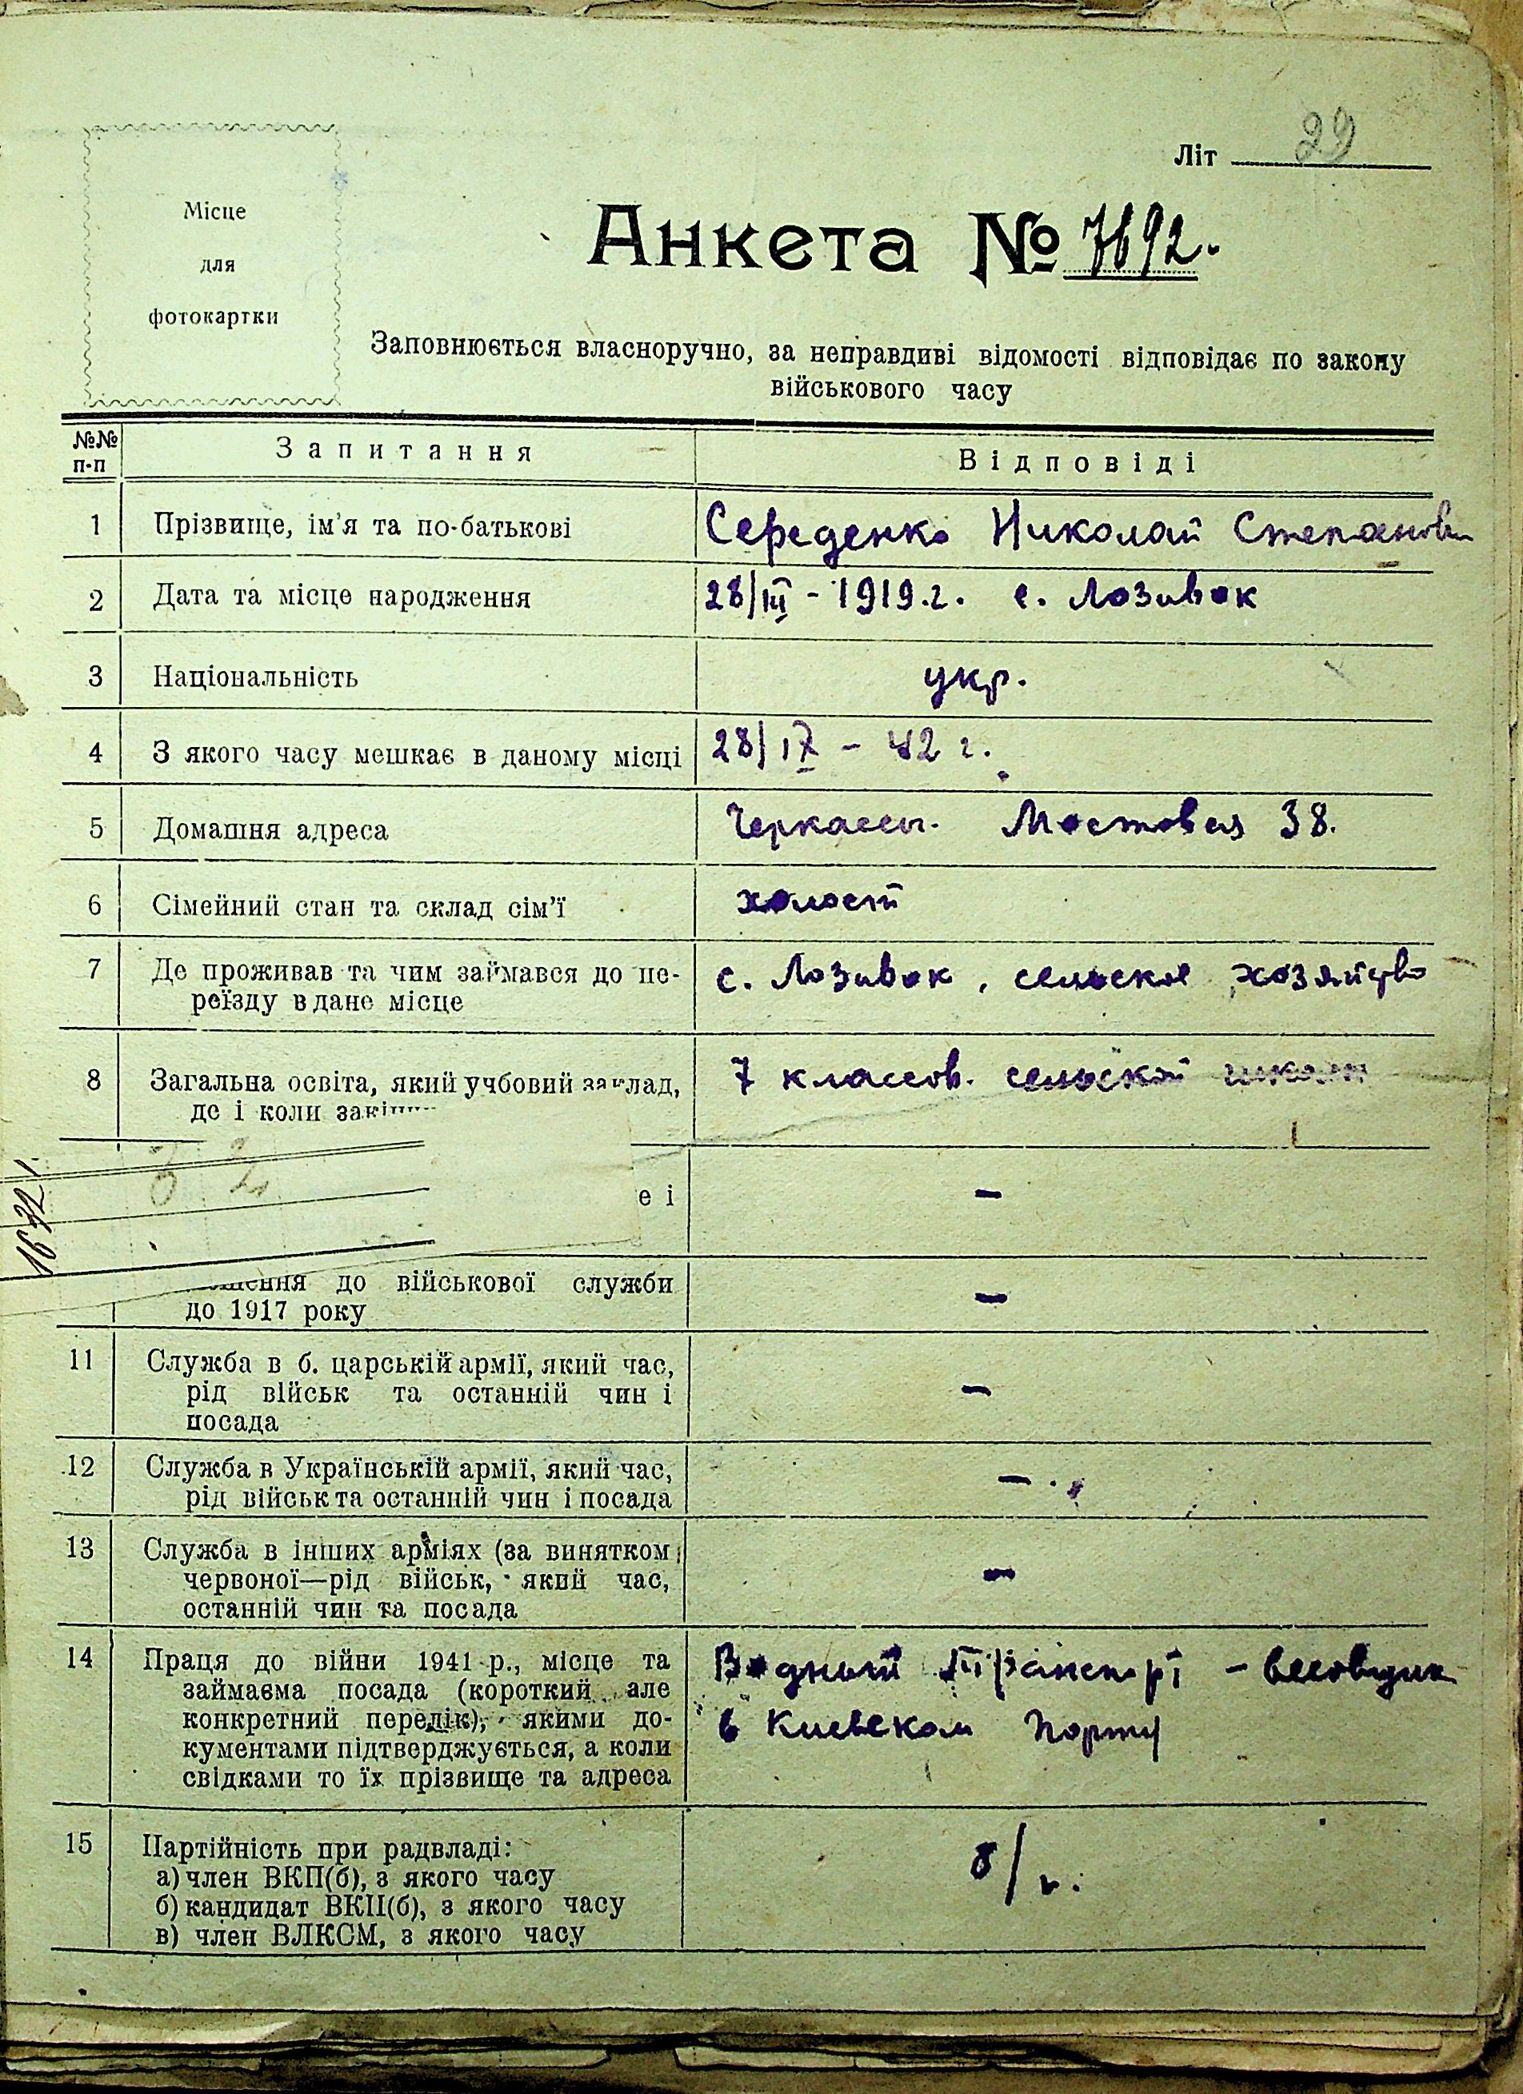 Літ 29
Місце
для
фотокартки
Анкета № 7692.
Заповнюється власноручно, за неправдиві відомості відповідає по закону
військового часу
№№ п-п Запитання Відповіді
1 Прізвище, ім'я та по-батькові Середенко Николай Степанови
2 Дата та місце народження 28/III - 1919 г. с. Лозивок
3 Національність укр.
4 З якого часу мешкає в даному місці 28/IX - 42 г.
5 Домашня адреса Черкассы. Мостовая 38.
6 Сімейний стан та склад сім'ї холост
7 Де проживав та чим займався до пе- с. Лозивок, сельское хозяйство
реїзду в дане місце
8 Загальна освіта, який учбовий заклад, 7 классов. сельской школы
де і коли
е і –
1672
до військової служби –
до 1917 року
11 Служба в б. царській армії, який час, –
рід військ та останній чин і
посада
12 Служба в Українській армії, який час, –
рід військ та останній чин і посада
13 Служба в інших арміях (за винятком –
червоної—рід військ, який час,
останній чин та посада
14 Праця до війни 1941 р., місце та Водный транспорт - весовщик
займаєма посада (короткий але в Киевском порту
конкретний переділ), якими до-
кументами підтверджується, а коли
свідками то їх прізвище та адреса
15 Партійність при радвладі: б/п.
а) член ВКП(б), з якого часу
б) кандидат ВКП(б), з якого часу
в) член ВЛКСМ, з якого часу